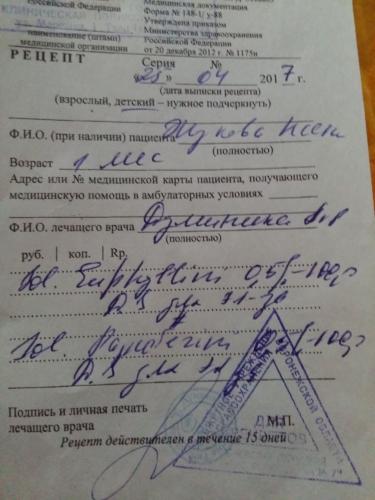 Российской Федерации
Медицинская документация
Форма № 148-1/ у-88
Утверждена приказом
Министерства здравоохранения
Российской Федерации
от 20 декабря 2012 г. № 1175н
наименование (штамп)
медицинской организации
РЕЦЕПТ
Серия №
«25» 04 2017 г.
(дата выписки рецепта)
(взрослый, детский – нужное подчеркнуть)
Ф.И.О. (при наличии) пациента Жукова
(полностью)
Возраст 1 мес
Адрес или № медицинской карты пациента, получающего
медицинскую помощь в амбулаторных условиях
Ф.И.О. лечащего врача
(полностью)
руб. | коп. | Rp.
Sol. Euphyllini 0,5% -100,0
D.S для эл-за
Sol. Papaverini -100,0
D.S для эл
Подпись и личная печать
лечащего врача
М.П.
Рецепт действителен в течение 15 дней
ВОРОНЕЖСКОЙ ОБЛАСТИ
ЗДРАВООХРАНЕНИЯ
ДЛЯ